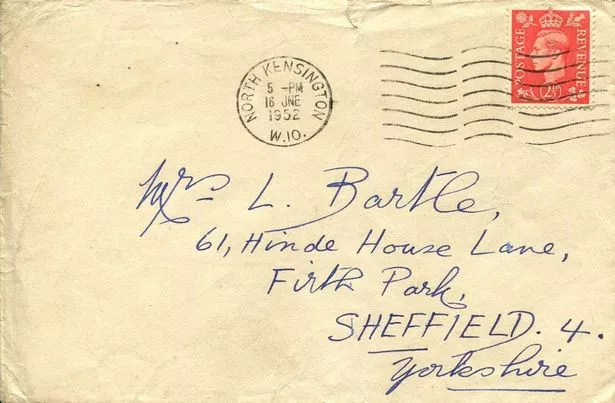 POSTAGE REVENUE
2½
NORTH KENSINGTON
5 - PM
16 JNE
1952
W.10.
Mrs L. Bartle,
61, Hinde House Lane,
Firth Park,
SHEFFIELD. 4.
Yorkshire